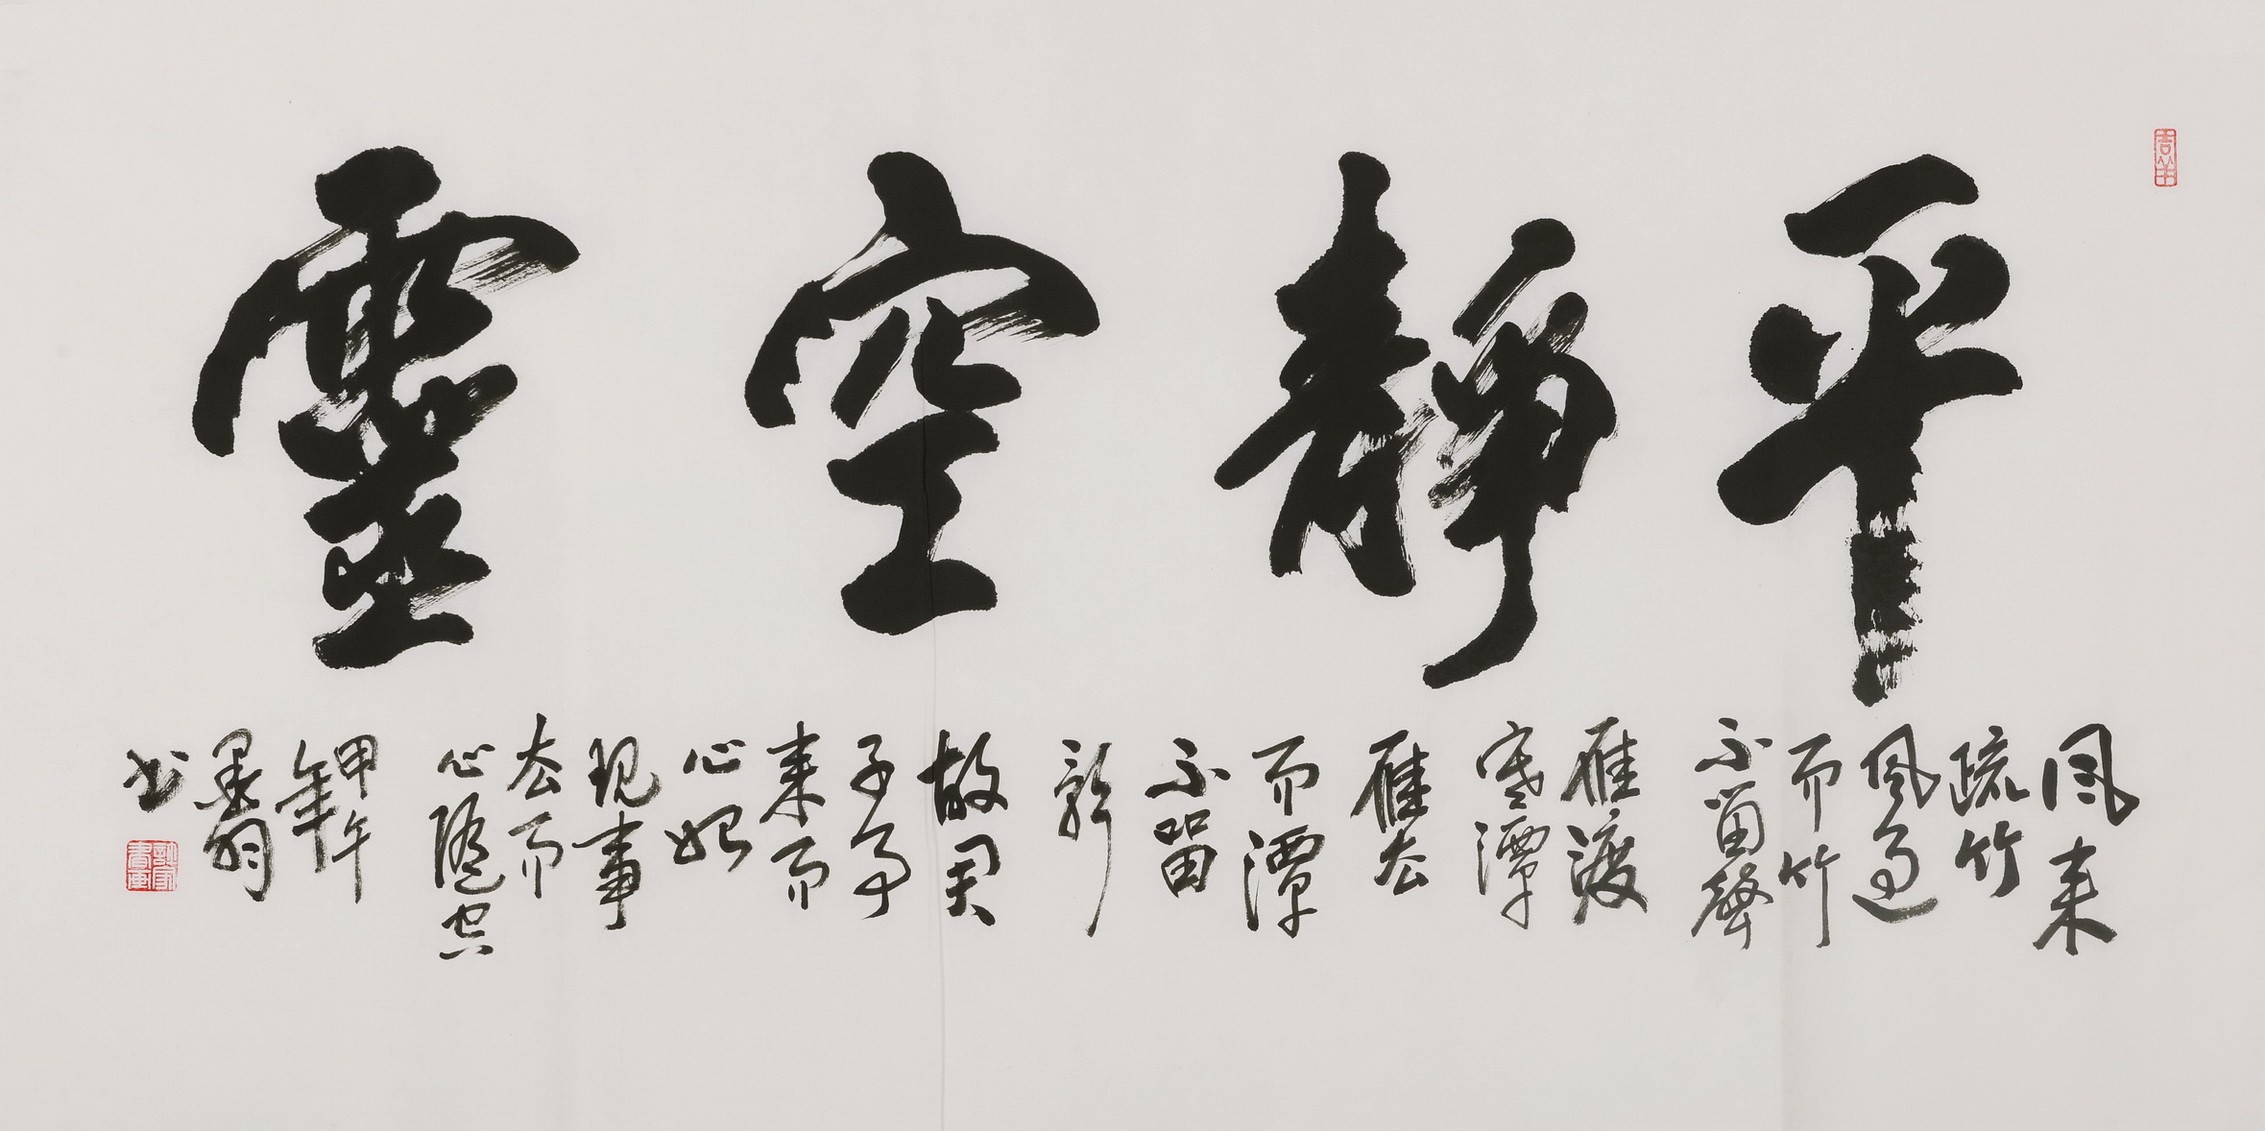 平靜空靈
風来
疏竹
風過
而竹
不留聲
雁渡
寒潭
雁去
而潭
不留
影
故君
子事
来而
心始
現事
去而
心隨空
甲午
年
墨羽
书